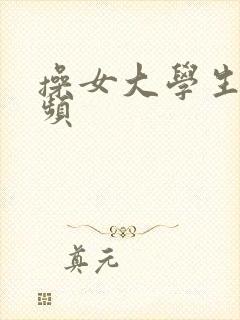 操女大學生
頻
真元